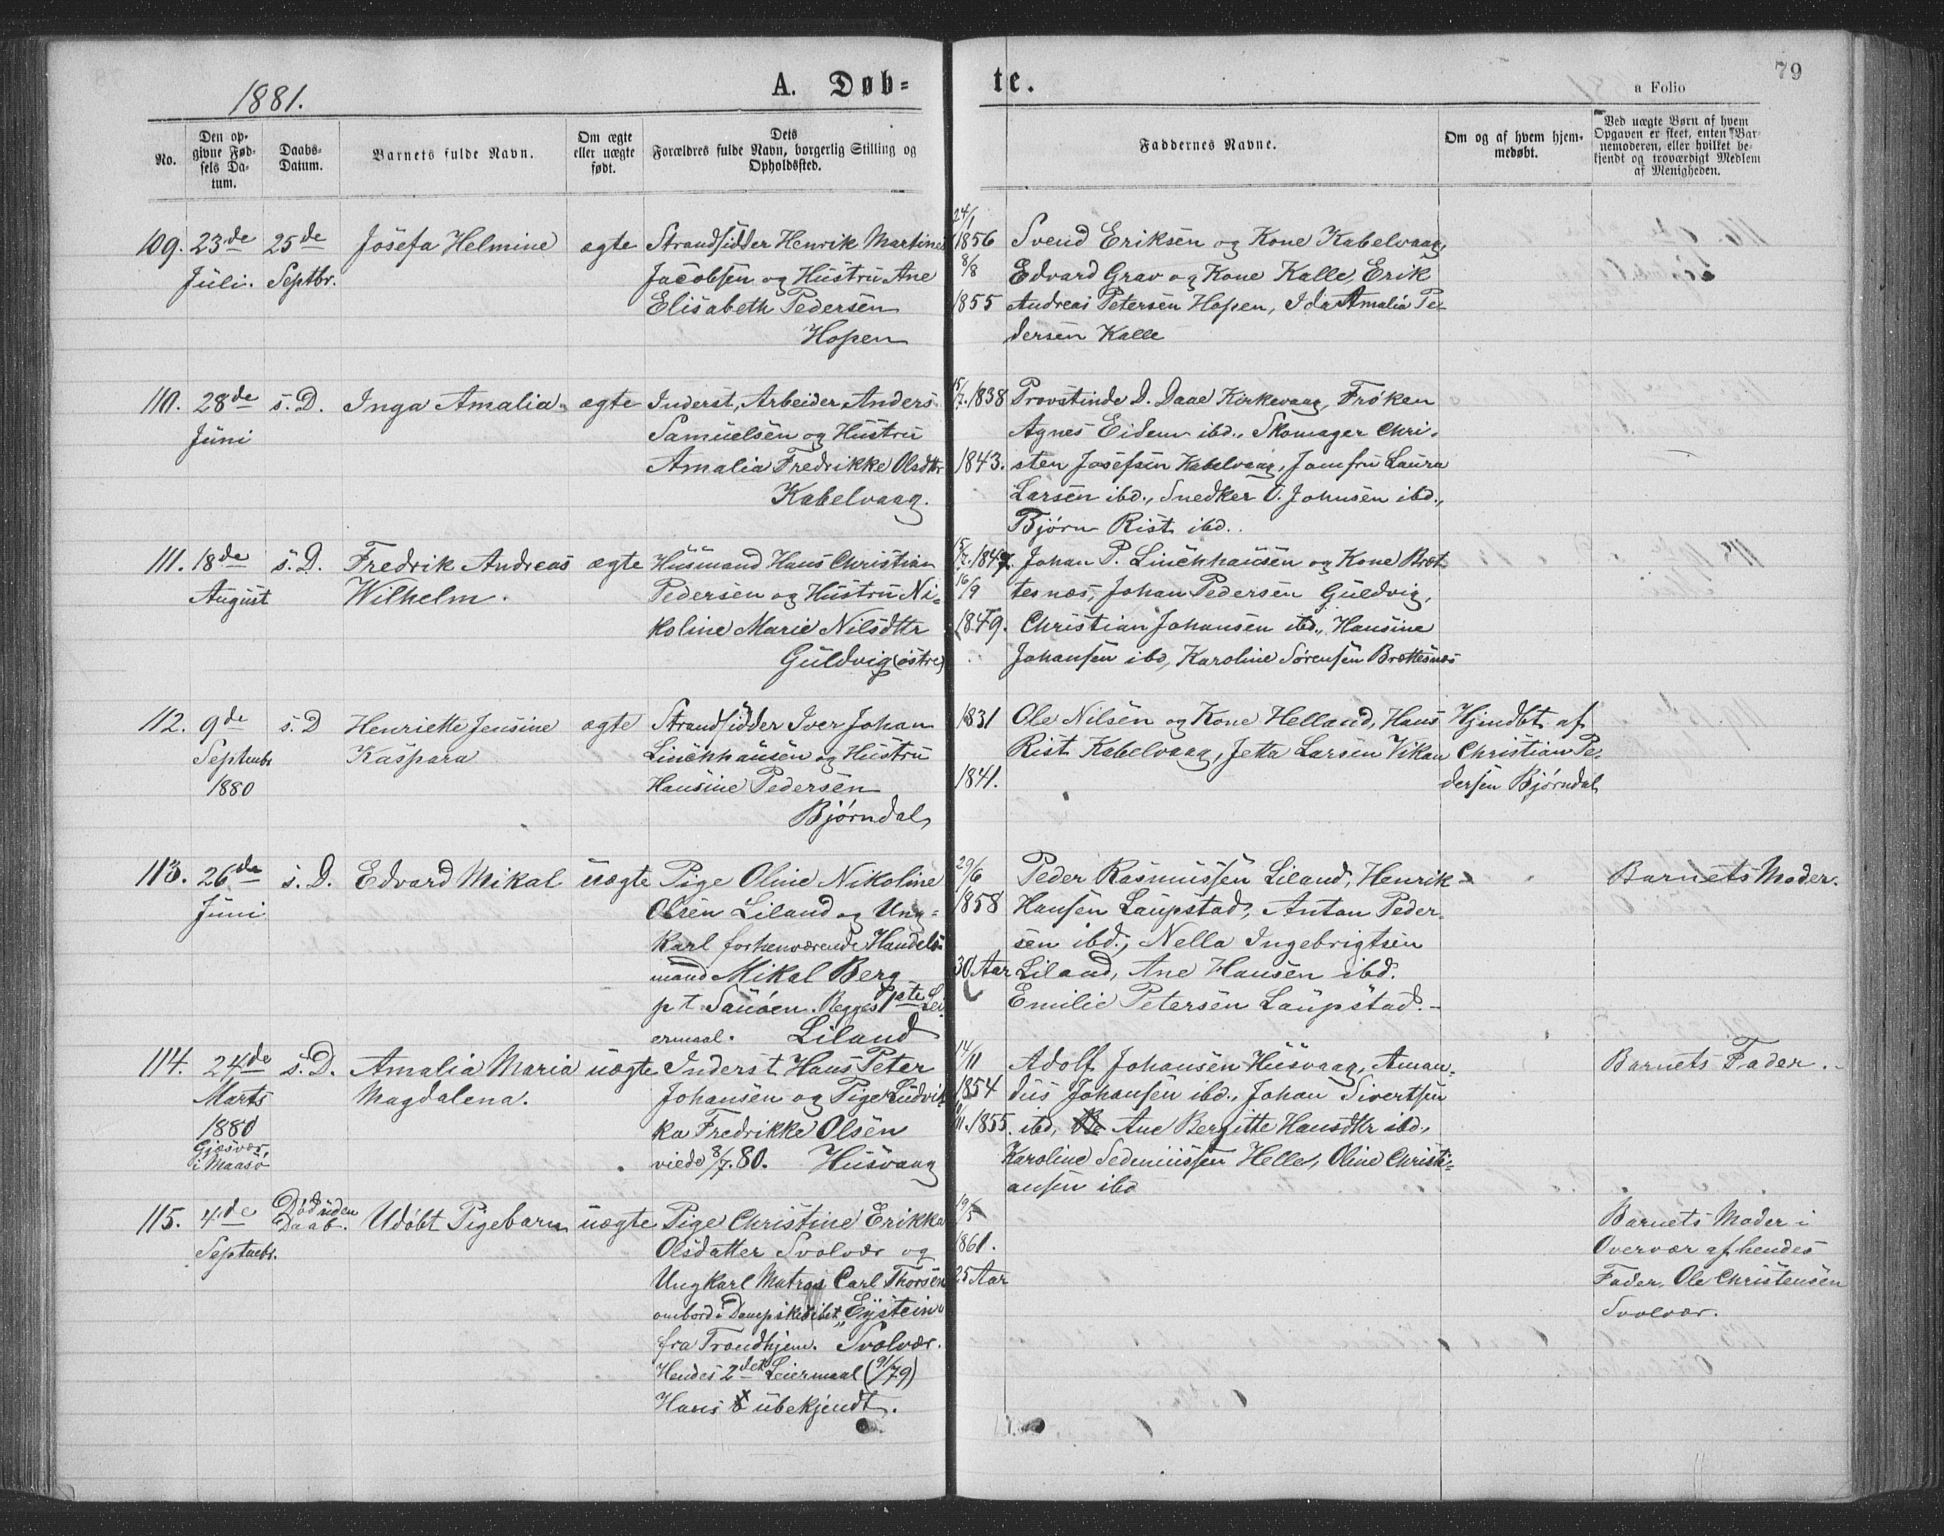 1881.
A. Døb=
te.
79
a Folio
No.
Den op-
givne Fød-
sels Da-
tum.
Daabs-
Datum.
Barnets fulde Navn.
Om ægte
eller uægte
født.
Dets
Forældres fulde Navn, borgerlig Stilling og
Opholdssted.
Faddernes Navne.
Om og af hvem hjem-
medøbt.
Ved uægte Børn af hvem
Opgaven er skeet, enten Bar-
nemoderen, eller hvilket be-
kjendt og troværdigt Medlem
af Menigheden.
109. 23de
Juli.
25de
Septbr.
Josefa Helmine
ægte
Strandsidder Henrik Martines
Jacobsen og Hustru Ane
Elisabeth Pedersen
Hopen
24/1
1856
8/8
1855
Svend Eriksen og Kone Kabelvaag,
Edvard Grav og Kone Kalle, Erik
Andreas Petersen Hopen, Ida Amalia Pe-
dersen Kalle
110. 28de
Juni
s. D.
Inga Amalia
ægte
Inderst, Arbeider Anders
Samuelsen og Hustru
Amalia Fredrikke Olsdtr
Kabelvaag.
15/7. 1838
1843.
Provstinde D. Daae Kirkevaag, Frøken
Agnes Eidem ibd., Skomager Chri-
sten Josefsen Kabelvaag, Jomfru Laura
Larsen ibd., Snedker O. Johnsen ibd.,
Bjørn Rist ibd.
111. 18de
August
s. D.
Fredrik Andreas
Wilhelm.
ægte
Husmand Hans Christian
Pedersen og Hustru Ni-
koline Marie Nilsdtr
Guldvig (østre)
15/7. 1847.
16/9
1849.
Johan P. Linchhausen og Kone Bræt
tesnæs, Johan Pedersen Guldvig,
Christian Johansen ibd., Hansine
Johansen ibd, Karoline Sørensen Brættesnæs
112. 9de
Septembr
1880
s. D
Henriette Jensine
Kaspara
ægte
Strandsidder Iver Johan
Linchhausen og Hustru
Hansine Pedersen
Bjørndal,
1831
1841.
Ole Nilsen og Kone Helland, Hans
Rist Kabelvaag, Jetta Larsen Vikan
Hjmdbt af
Christian Pe-
dersen Bjørndal
113. 26de
Juni
s. D.
Edvard Mikal
uægte
Pige Oline Nikoline
Olsen Liland og Ung-
karl forhenværende Handels-
mand Mikal Berg
p t Sauøen. Begges 1ste Lei-
ermaal. Liland
29/6
1858
30 Aar
Peder Rasmussen Liland, Henrik
Hansen Laupstad, Anton Peder-
sen ibd., Nella Ingebrigtsen
Liland, Ane Hansen ibd.
Emilie Petersen Laupstad.-
Barnets Moder.
114. 24de
Marts
1880
Gjesvær,
i Maasø
s. D.
Amalia Maria
Magdalena.
uægte
Inderst Hans Peter
Johansen og Pige Ludvik-
ka Fredrikke Olsen
viede 8/7. 80. Husvaag
14/11
1854
/11. 1855.
Adolf Johansen Husvaag, Aman-
dus Johansen ibd., Johan Sivertsen
ibd, Ane Bergitte Hansdtr ibd,
Karoline Sedeniussen Helle, Oline Christi-
ansen ibd
Barnets Fader.
115. 4de
Septmbr.
Død uden
Daab.
Udøbt Pigebarn
uægte
Pige Christine Erikka
Olsdatter Svolvær og
Ungkarl Matros Carl Thorsen
ombord i Dampskibet Eystein
fra Trondhjem. Svolvær.
Hendes 2det Leiermaal (9/1 79)
Hans ubekjendt.
19/5
1861.
25 Aar
Barnets Moder i
Overvær af hendes
Fader, Ole Christensen
Svolvær.